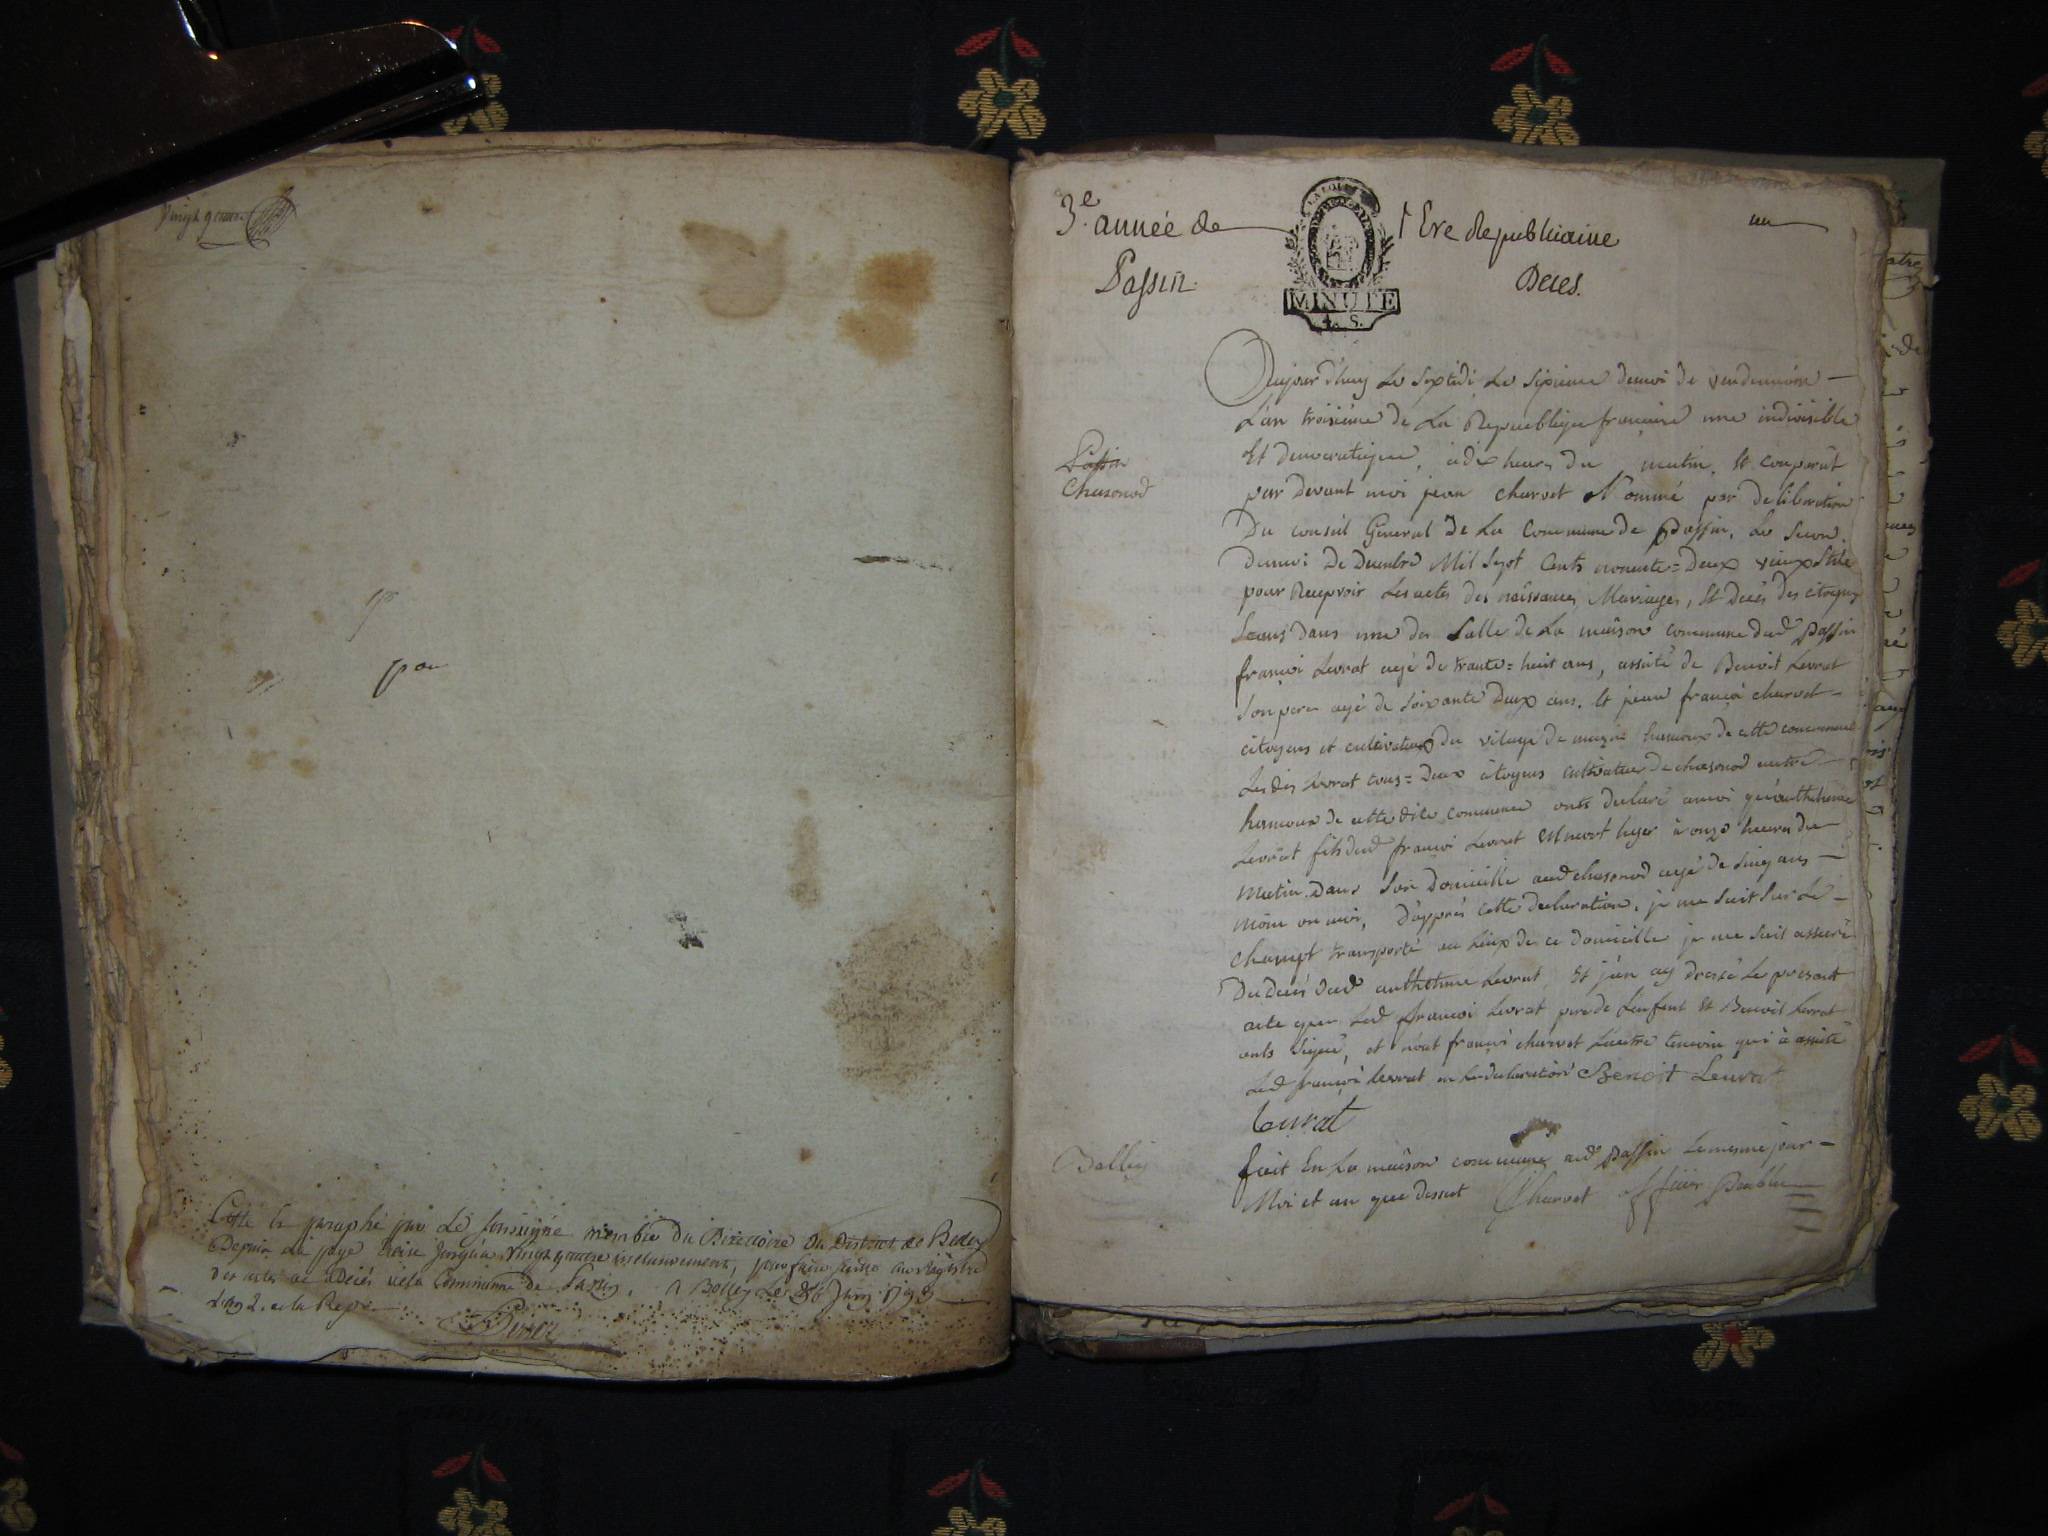 Vingt quatre
pou
Cotté et paraphé par le soussigné membre du Directoire du District de Belley
Depuis la page treize jusqu'à vingt quatre inclusivement, pour faire suitte au régistre
des actes de Décés de la Commune de Passin. A Belley Le 26 Juin
L'an 2. de la Rep.
3.e année de l'Ere Republicaine un
Passin. Deces.
MINUTE
4. S.
Aujourd'huy Le Sextidi Le sixieme dumoi de vendemiaire
L'an troisiéme de La Republique francaise une indivisible
Et democratique, à dix heures du matin, Et comparut
par devant moi jean charvet Nommé par deliberation
Du conseil General de La commune de Passin, Le Secon
dumoi De Decembre Mil Sept Cents nonente=Deux vieux Stile
pour Recepvoir Les actes des naissances, Mariages, Et Decés des citoyens
Passin
Chasonod
Leans Dans une des Salle de La maison commune dud Passin
françoi Levrat agé de trante=huit ans, assisté de Benoit Levrat
Son pere agé de Soixante Deux ans, Et jean françoi charvet
citoyens et cultivateurs du vilage de hameux de cette commune
Les dis Levrat tous=deux citoyens cultivateur de chasonod autre
hameux de cette dite commune onts declaré amoi qu'anthelme
Levrat fils dud françoi Levrat est mort hyer à onze heures du
Matin Dans Son Domicille aud chasonod agé de Sinq ans
moin un moi, D'apprés cette declaration, je me suit Sur Le
champt transporté au Lieux de ce domicille je me suis assuré
Du decés dud anthelme Levrat, Et j'en ay dressé Le present
acte que Led françoi Levrat pere de L'enfent Et Benoit Levrat
onts signé, et non françoi charvet L'autre temoin qui à assisté
Led françoi Levrat en La declaration Benoit Leurat
Leurat
Fait En La maison commune aud Passin Le meme jour
Moi et an que dessut Charvet officier Publie
Balley